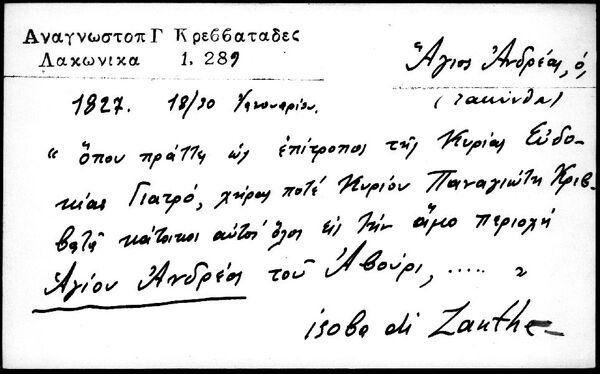 Αναγνωστοπ Γ Κρεββαταδες
Λακωνικα 1. 289
Ἅγιος Ἀνδρέας, ὁ,
(Ζακύνθου)
1827. 18/30 Ἰανουαρίου.
"ὅπου πράττη ὡς ἐπίτροπος τῆς Κυρίας Εὐδο-
κίας Γιατρό, χήρας ποτέ Κυρίου Παναγιώτη Κριβ-
βατᾶ κάτοικοι αὐτοί ὅλοι εἰς τήν ἄμο περιοχή
Ἁγίου Ἀνδρέας τοῦ Ἀβούρι, ..... "
isola di Zanthe